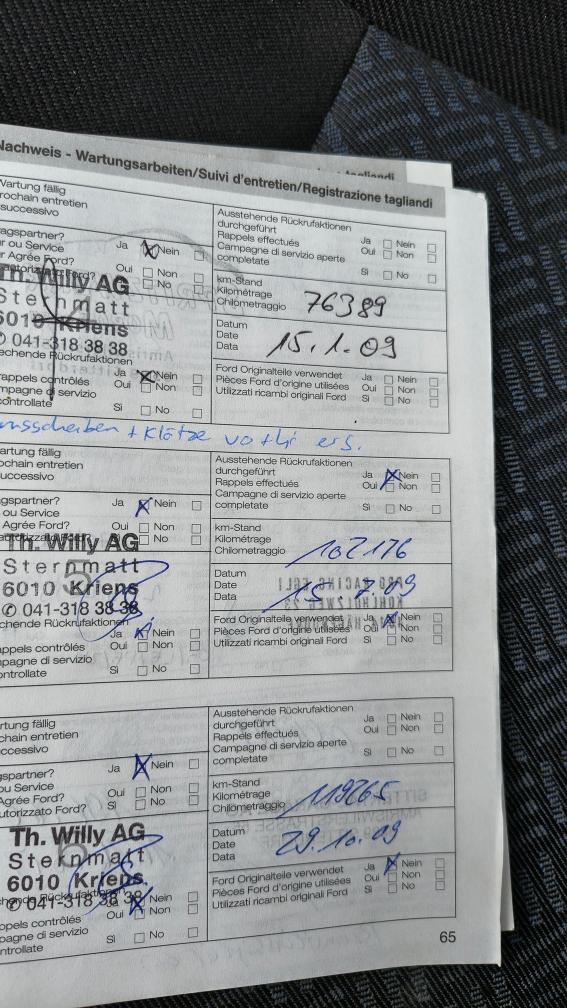 Nachweis - Wartungsarbeiten/Suivi d'entretien/Registrazione tagliandi
Wartung fällig
rochain entretien
successivo
agspartner? Ja Nein
r ou Service
r Agrée Ford? Oui Non
No
Th. Willy AG
Sternmatt
6010 Kriens
✆ 041-318 38 38
echende Rückrufaktionen
Ja Nein
rappels contrôlés Oui Non
mpagne di servizio
controllate Si No
Ausstehende Rückrufaktionen
durchgeführt Ja Nein
Rappels effectués Oui Non
Campagne di servizio aperte
completate Si No
km-Stand
Kilométrage
Chilometraggio 76389
Datum
Date
Data 15.1.09
Ford Originalteile verwendet Ja Nein
Pièces Ford d'origine utilisées Oui Non
Utilizzati ricambi originali Ford Si No
+ Klötze
artung fällig
ochain entretien
uccessivo
gspartner? Ja Nein
ou Service
Agrée Ford? Oui Non
No
Th. Willy AG
Sternmatt
6010 Kriens
✆ 041-318 38 38
chende Rückrufaktionen
Ja Nein
ppels contrôlés Oui Non
pagne di servizio
ontrollate Si No
Ausstehende Rückrufaktionen
durchgeführt Ja Nein
Rappels effectués Oui Non
Campagne di servizio aperte
completate Si No
km-Stand
Kilométrage
Chilometraggio 102176
Datum
Date
Data 15.7.09
Ford Originalteile verwendet Ja Nein
Pièces Ford d'origine utilisées Oui Non
Utilizzati ricambi originali Ford Si No
rtung fällig
chain entretien
ccessivo
spartner? Ja Nein
ou Service
Agrée Ford? Oui Non
utorizzato Ford? Si No
Th. Willy AG
Sternmatt
6010 Kriens
✆ 041-318 38 38
Ja Nein
pels contrôlés Oui Non
pagne di servizio
ntrollate Si No
Ausstehende Rückrufaktionen
durchgeführt Ja Nein
Rappels effectués Oui Non
Campagne di servizio aperte
completate Si No
km-Stand
Kilométrage
Chilometraggio 119265
Datum
Date
Data 29.10.09
Ford Originalteile verwendet Ja Nein
Pièces Ford d'origine utilisées Oui Non
Utilizzati ricambi originali Ford Si No
65